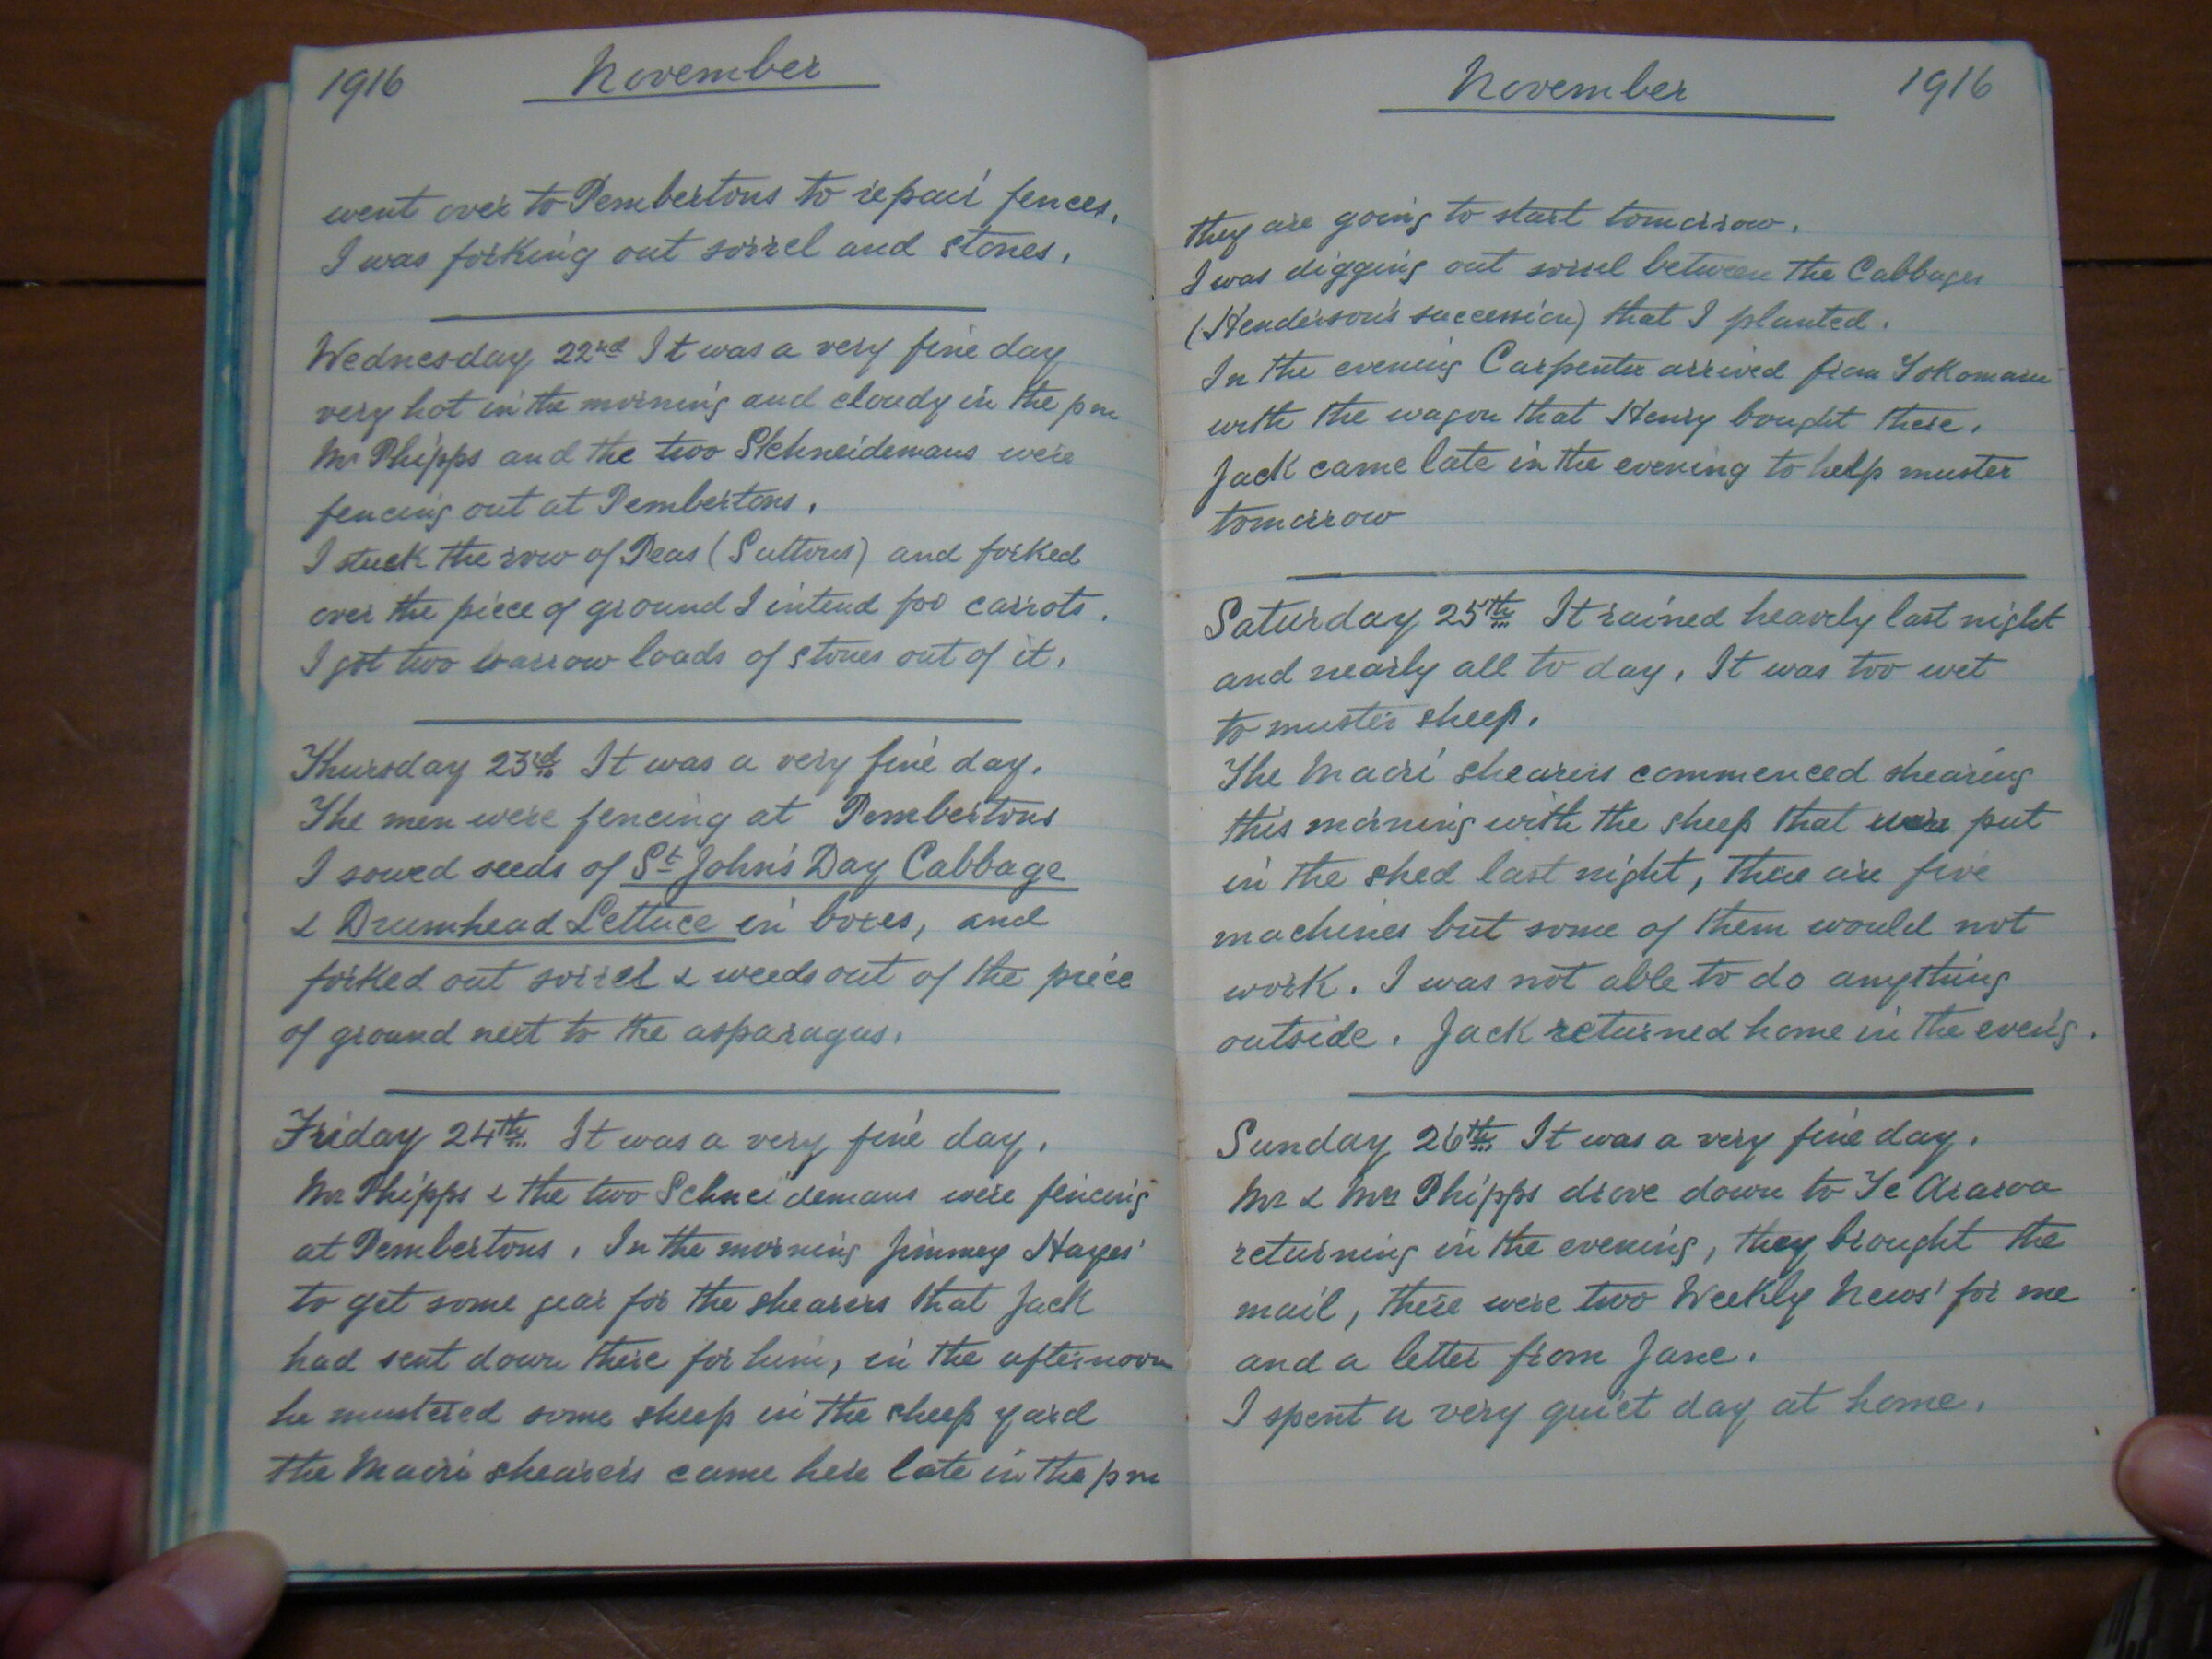 1916 November
went over to Pembertons to repair fences.
I was forking out sorrel and stones.
Wednesday 22nd It was a very fine day
very hot in the morning and cloudy in the pm
Mr Phipps and the two Skhneidemans were
fencing out at Pembertons.
I stuck the row of Peas (Suttons) and forked
over the piece of ground I intend for carrots.
I got two barrow loads of stones out of it.
Thursday 23rd It was a very fine day.
The men were fencing at Pembertons
I sowed seeds of St John's Day Cabbage
& Drumhead Lettuce in boxes, and
forked out sorrel & weeds out of the piece
of ground next to the asparagus.
Friday 24th It was a very fine day.
Mr Phipps & the two Schneidemans were fencing
at Pembertons. In the morning Jimmey Hayes'
to get some gear for the shearers that Jack
had sent down there for him, in the afternoon
he mustered some sheep in the sheep yard
the Maori shearers came here late in the pm
November 1916
they are going to start tomorrow.
I was digging out sorrel between the Cabbages
(Henderson's succession) that I planted.
In the evening Carpenter arrived from Tokomaru
with the wagon that Henry bought there.
Jack came late in the evening to help muster
tomorrow
Saturday 25th It rained heavely last night
and nearly all to day. It was too wet
to muster sheep.
The Maori shearers commenced shearing
this morning with the sheep that were put
in the shed last night, there are five
machines but some of them would not
work. I was not able to do anything
outside. Jack returned home in the eveng.
Sunday 26th It was a very fine day.
Mr & Mrs Phipps drove down to Te Araroa
returning in the evening, they brought the
mail, there were two Weekly News' for me
and a letter from Jane.
I spent a very quiet day at home.